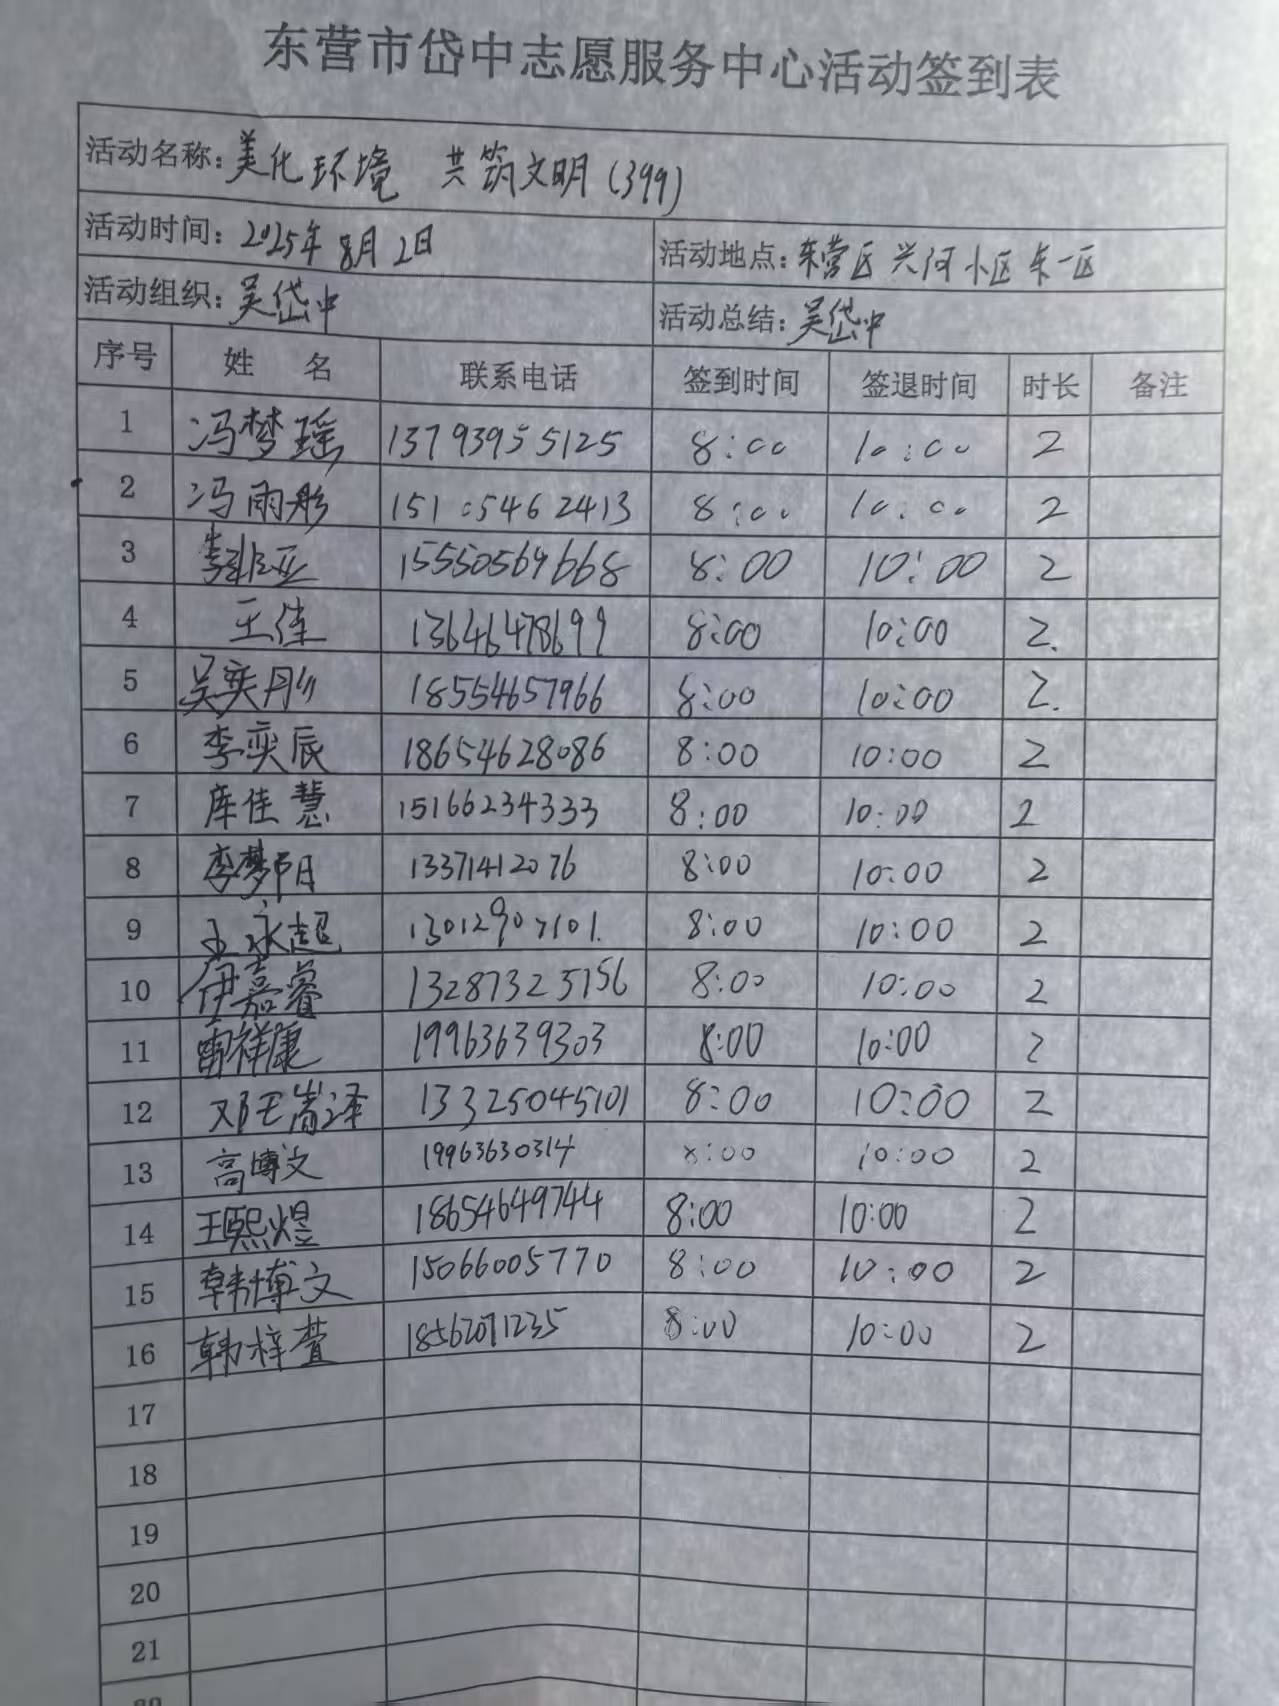 东营市岱中志愿服务中心活动签到表
活动名称：美化环境 共筑文明（399）
活动时间：2025年8月2日 活动地点：东营区兴河小区东一区
活动组织：吴岱中 活动总结：吴岱中
序号 姓名 联系电话 签到时间 签退时间 时长 备注
1 冯梦瑶 13793955125 8:00 10:00 2
2 冯雨彤 15105462413 8:00 10:00 2
3 李 亚 15550569668 8:00 10:00 2
4 王佳 13646478699 8:00 10:00 2.
5 吴奕彤 18554657966 8:00 10:00 2.
6 李奕辰 18654628086 8:00 10:00 2
7 库佳慧 15166234333 8:00 10:00 2
8 李梦 13371412076 8:00 10:00 2
9 王永超 8:00 10:00 2
10 伊嘉睿 13287325156 8:00 10:00 2
11 雷祥康 19963639303 8:00 10:00 2
12 邓王嵩泽 13325045101 8:00 10:00 2
13 高博文 19963630314 8:00 10:00 2
14 王熙煜 18654649744 8:00 10:00 2
15 韩博文 15066005770 8:00 10:00 2
16 韩梓萱 18562071235 8:00 10:00 2
17
18
19
20
21